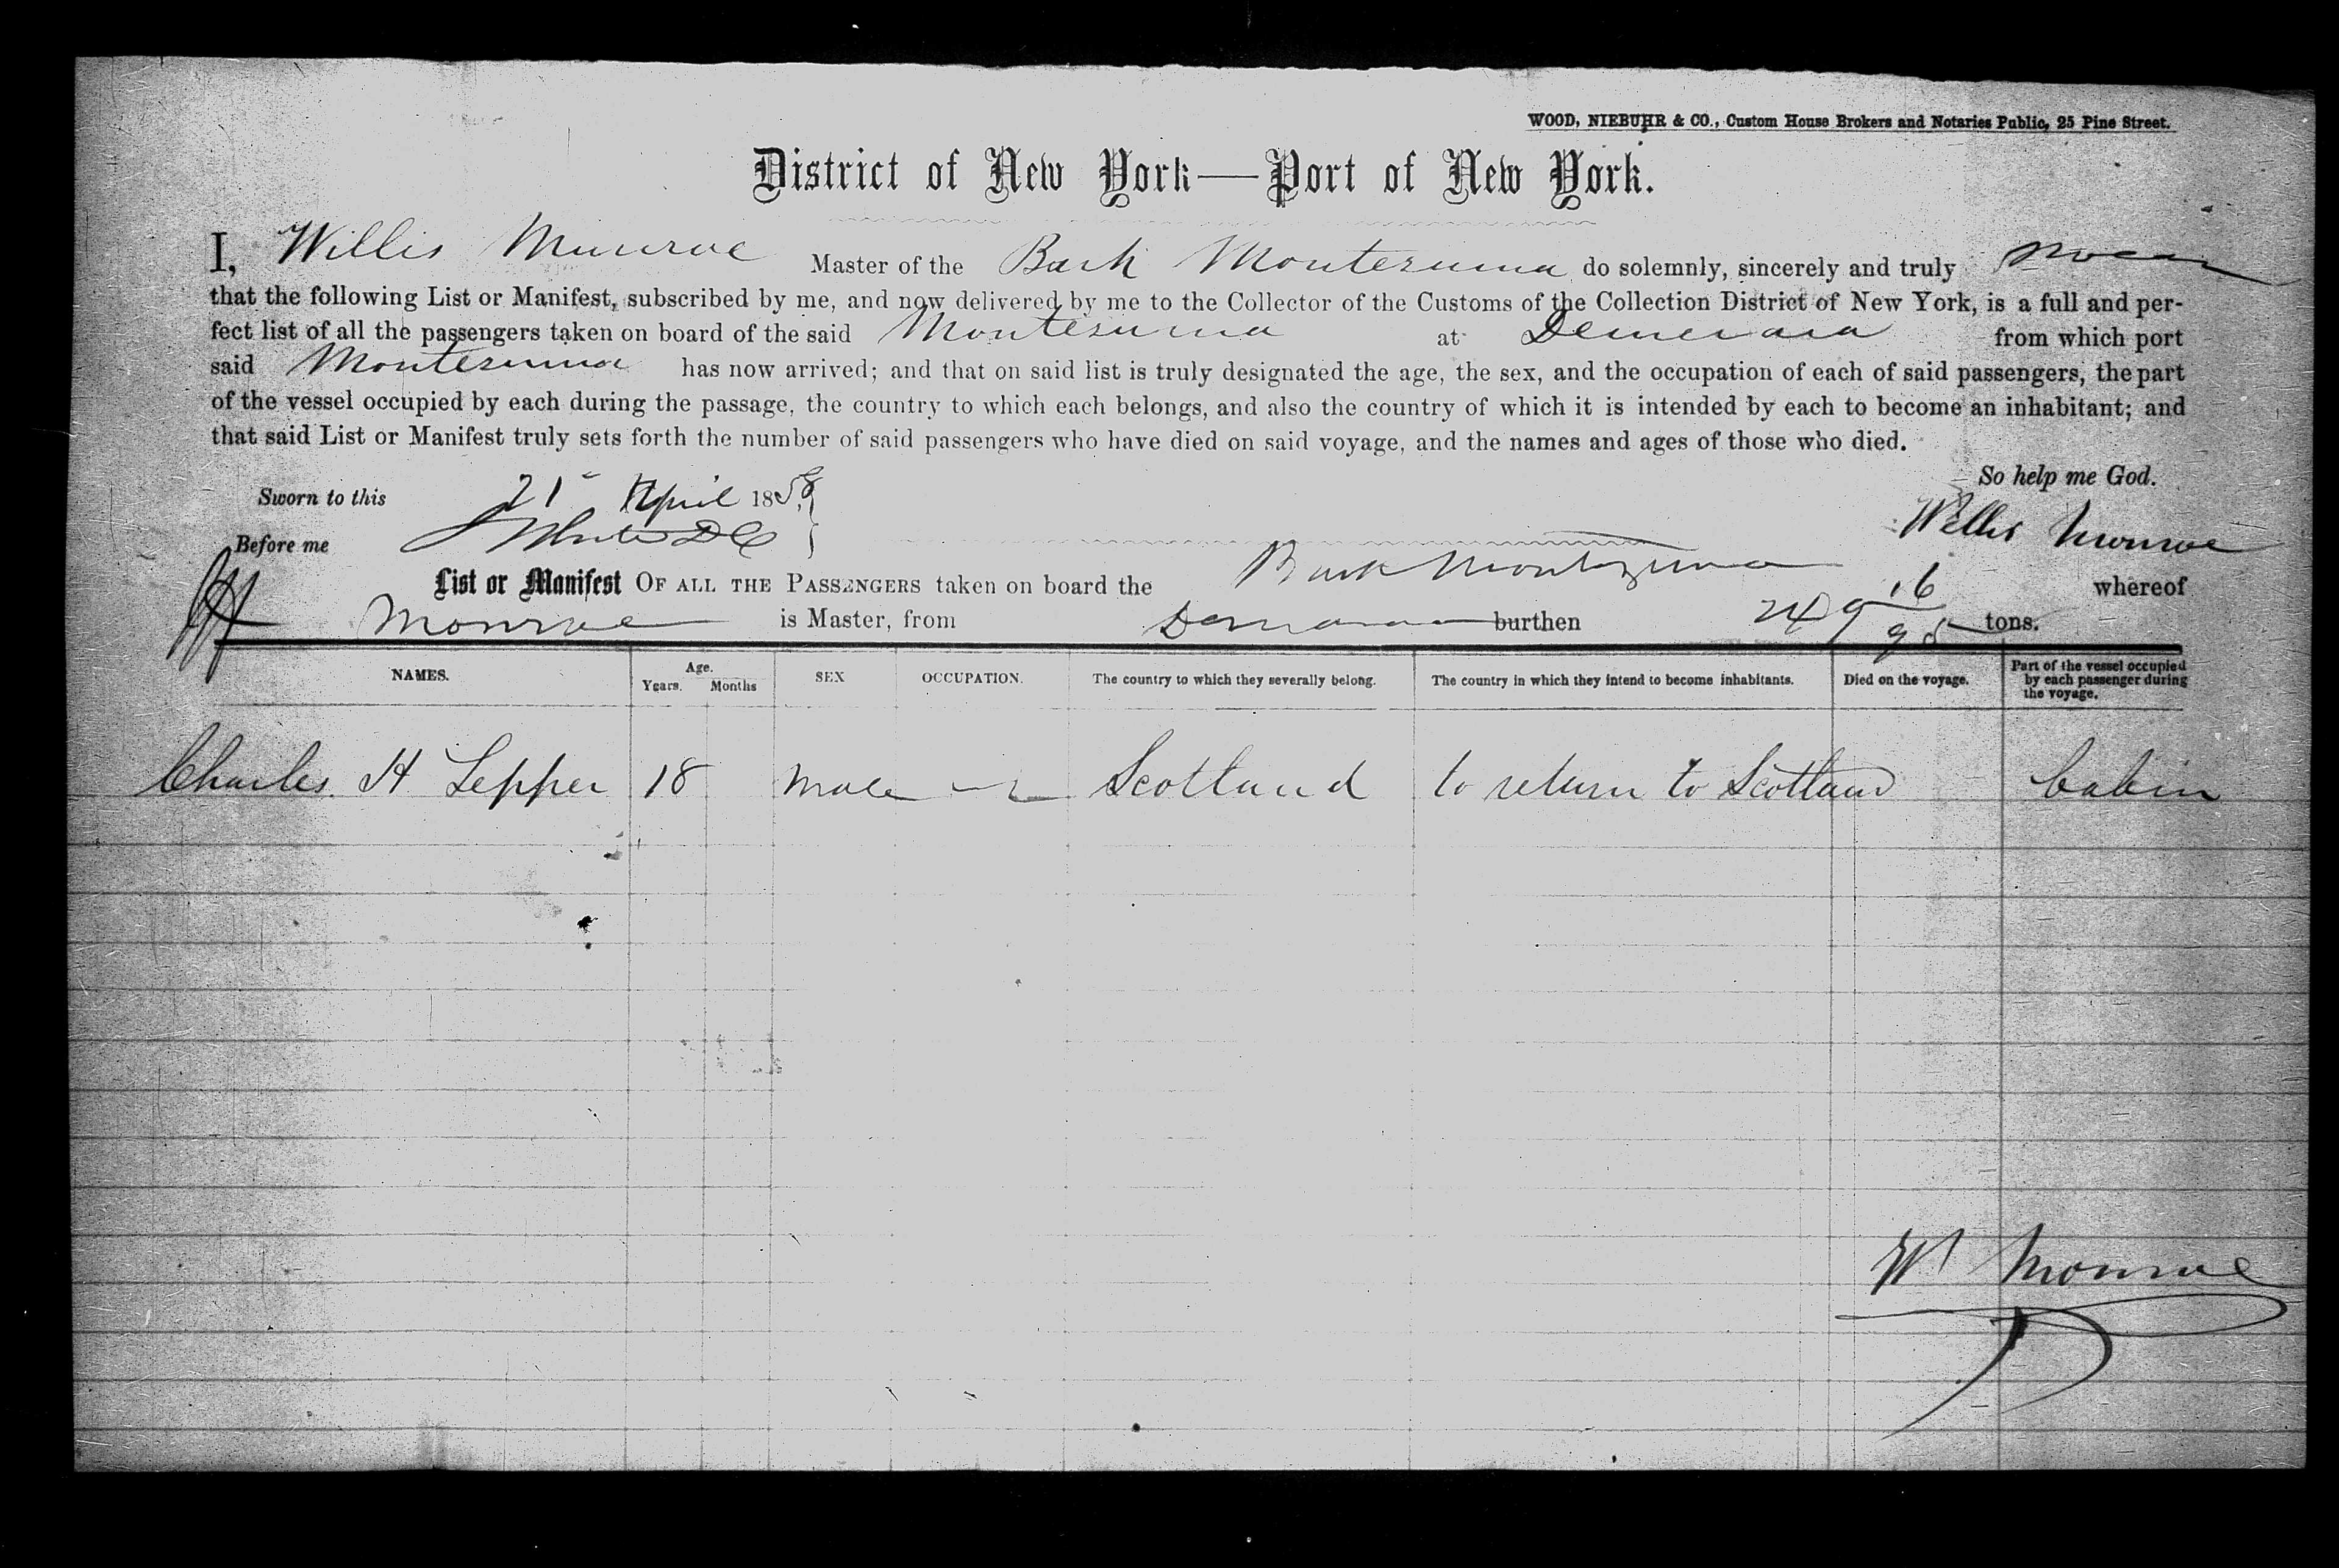 WOOD, NIEBUHR & CO., Custom House Brokers and Notaries Public, 25 Pine Street.
District of New York—Port of New York.
I, Willis Munroe Master of the Bark Montezuma do solemnly, sincerely and truly swear
that the following List or Manifest, subscribed by me, and now delivered by me to the Collector of the Customs of the Collection District of New York, is a full and per-
fect list of all the passengers taken on board of the said Montezuma at Demerara from which port
said Montezuma has now arrived; and that on said list is truly designated the age, the sex, and the occupation of each of said passengers, the part
of the vessel occupied by each during the passage, the country to which each belongs, and also the country of which it is intended by each to become an inhabitant; and
that said List or Manifest truly sets forth the number of said passengers who have died on said voyage, and the names and ages of those who died.
So help me God.
Sworn to this 21st April 1858
Willis Munroe
Before me
List or Manifest OF ALL THE PASSENGERS taken on board the Bark Montezuma whereof
Monroe is Master, from Demerara burthen 249 16/95 tons.
NAMES. Age. Years. Months SEX OCCUPATION. The country to which they severally belong. The country in which they intend to become inhabitants. Died on the voyage. Part of the vessel occupied by each passenger during the voyage.
Charles H Lepper 18 Male Scotland to return to Scotland Cabin
W Monroe